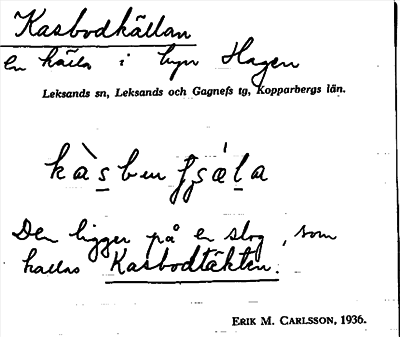 Kasbodkällan
en källa i byn Hagen
Leksands sn, Leksands och Gagnefs tg, Kopparbergs län.
Den ligger på en slog, som
kallas Kasbodtäkten.
ERIK M. CARLSSON, 1936.